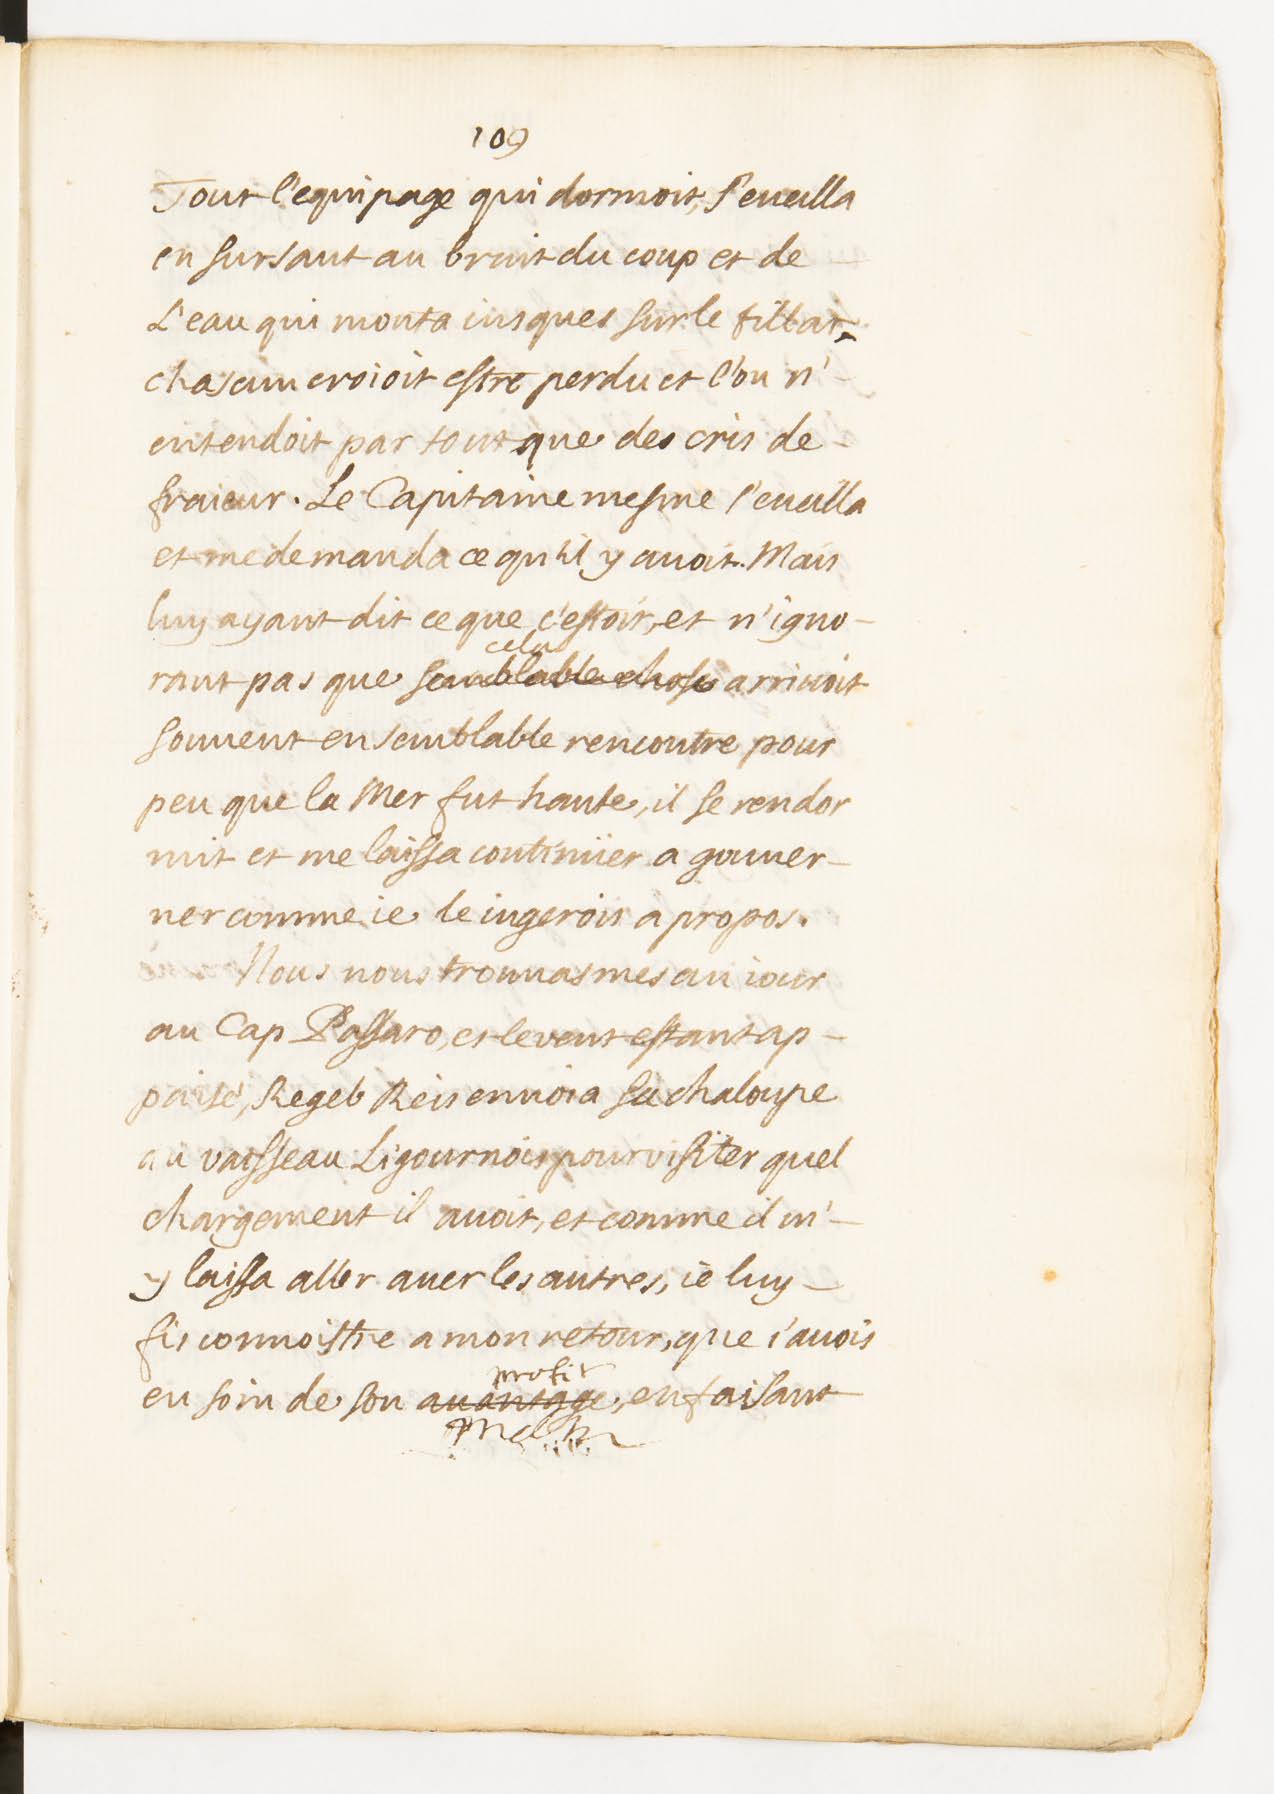 109
Tout l'equipage qui dormoit, s'eueilla
en sursaut au bruit du coup et de
L'eau qui monta iusques sur le tillat,
chascun croioit estre perdu et l'on n'
entendoit par tout que des cris de
fraieur. Le Capitaine mesme s'eueilla
et me demanda ce qu'il y auoit. Mais
luy ayant dit ce que c'estoit, et n'igno-
cela
rant pas que semblable chose arriuoit
souuent en semblable rencontre pour
peu que la Mer fut haute, il se rendor
mit et me laissa continüer a gouuer-
ner comme ie le iugerois a propos.
Nous nous trouuasmes au iour
au Cap Passaro, et le vent estant ap-
paisé, Regeb Reis enuoia sa chaloupe
au vaisseau Ligournois pour visiter quel
chargement il auoit, et comme il m'-
y laissa aller auec les autres, ie luy
fis connoistre a mon retour, que i'auois
profit
eu soin de son auantage, en faisant